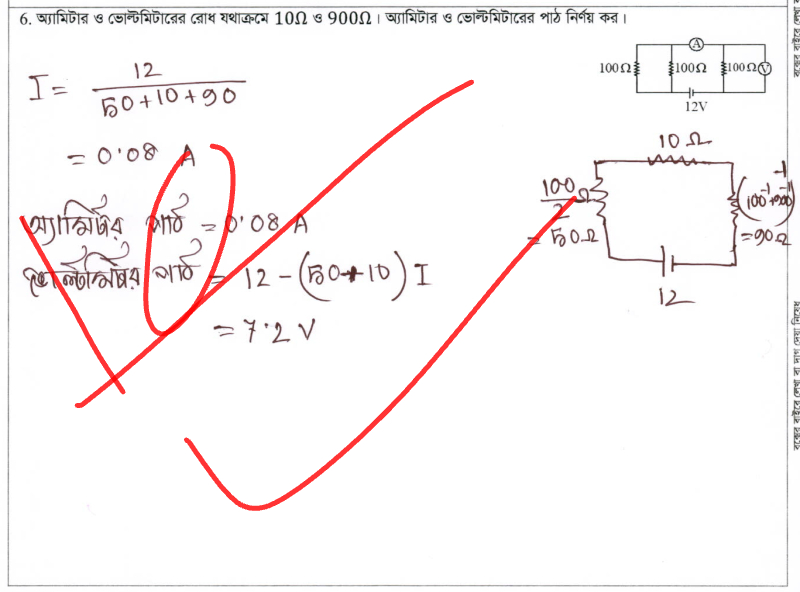 6. অ্যামিটার ও ভোল্টমিটারের রোধ যথাক্রমে 10Ω ও 900Ω। অ্যামিটার ও ভোল্টমিটারের পাঠ নির্ণয় কর।
A
100Ω 100Ω 100Ω V
12V
I = 12 / 50+10+90
= 0.08 A
অ্যামিটার পাঠ = 0.08 A
ভোল্টমিটার পাঠ = 12 - (50+10) I
= 7.2 V
10 Ω
100/2 Ω
= 50Ω
(100⁻¹+900⁻¹)⁻¹
= 90Ω
12